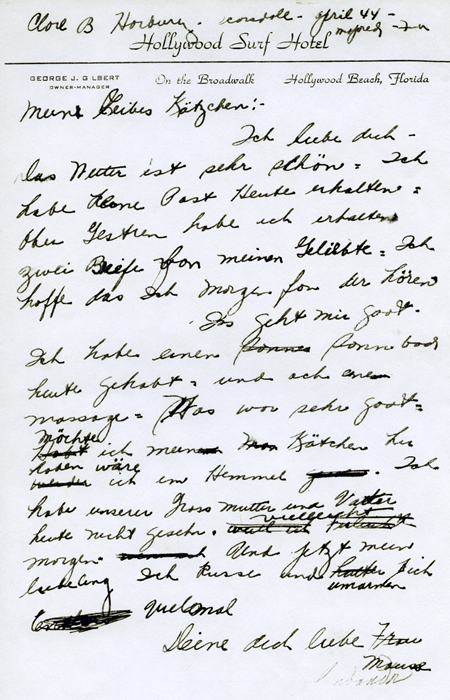 Hollywood Surf Hotel
GEORGE J. GILBERT
OWNER-MANAGER
On the Broadwalk
Hollywood Beach, Florida
april 44 -
Meine Leibes Kätzchen:-
Ich liebe dich -
Das Wetter ist sehr schön = Ich
habe keine Post Heute erhalten =
Ober Gestren habe ich erhalten
zwei Briefe fon meinen Geliebte = Ich
hoffe das Ich Morgen fon der hören
Es geht mir goot -
Ich habe einen Sonn bad
heute gehabt = und ach ene
massage = Was war sehr goot =
Möchte ich mein Kätchen hir
haben wäre ich im Hemmel. Ich
habe unserer Gross mutter und Vatter
heute nicht gesehn. vielleicht
morgen. Und jetzt mein
liebeling Ich kusse und Dich
umarmen
vielmal
Deine dich liebe Frau
Mause